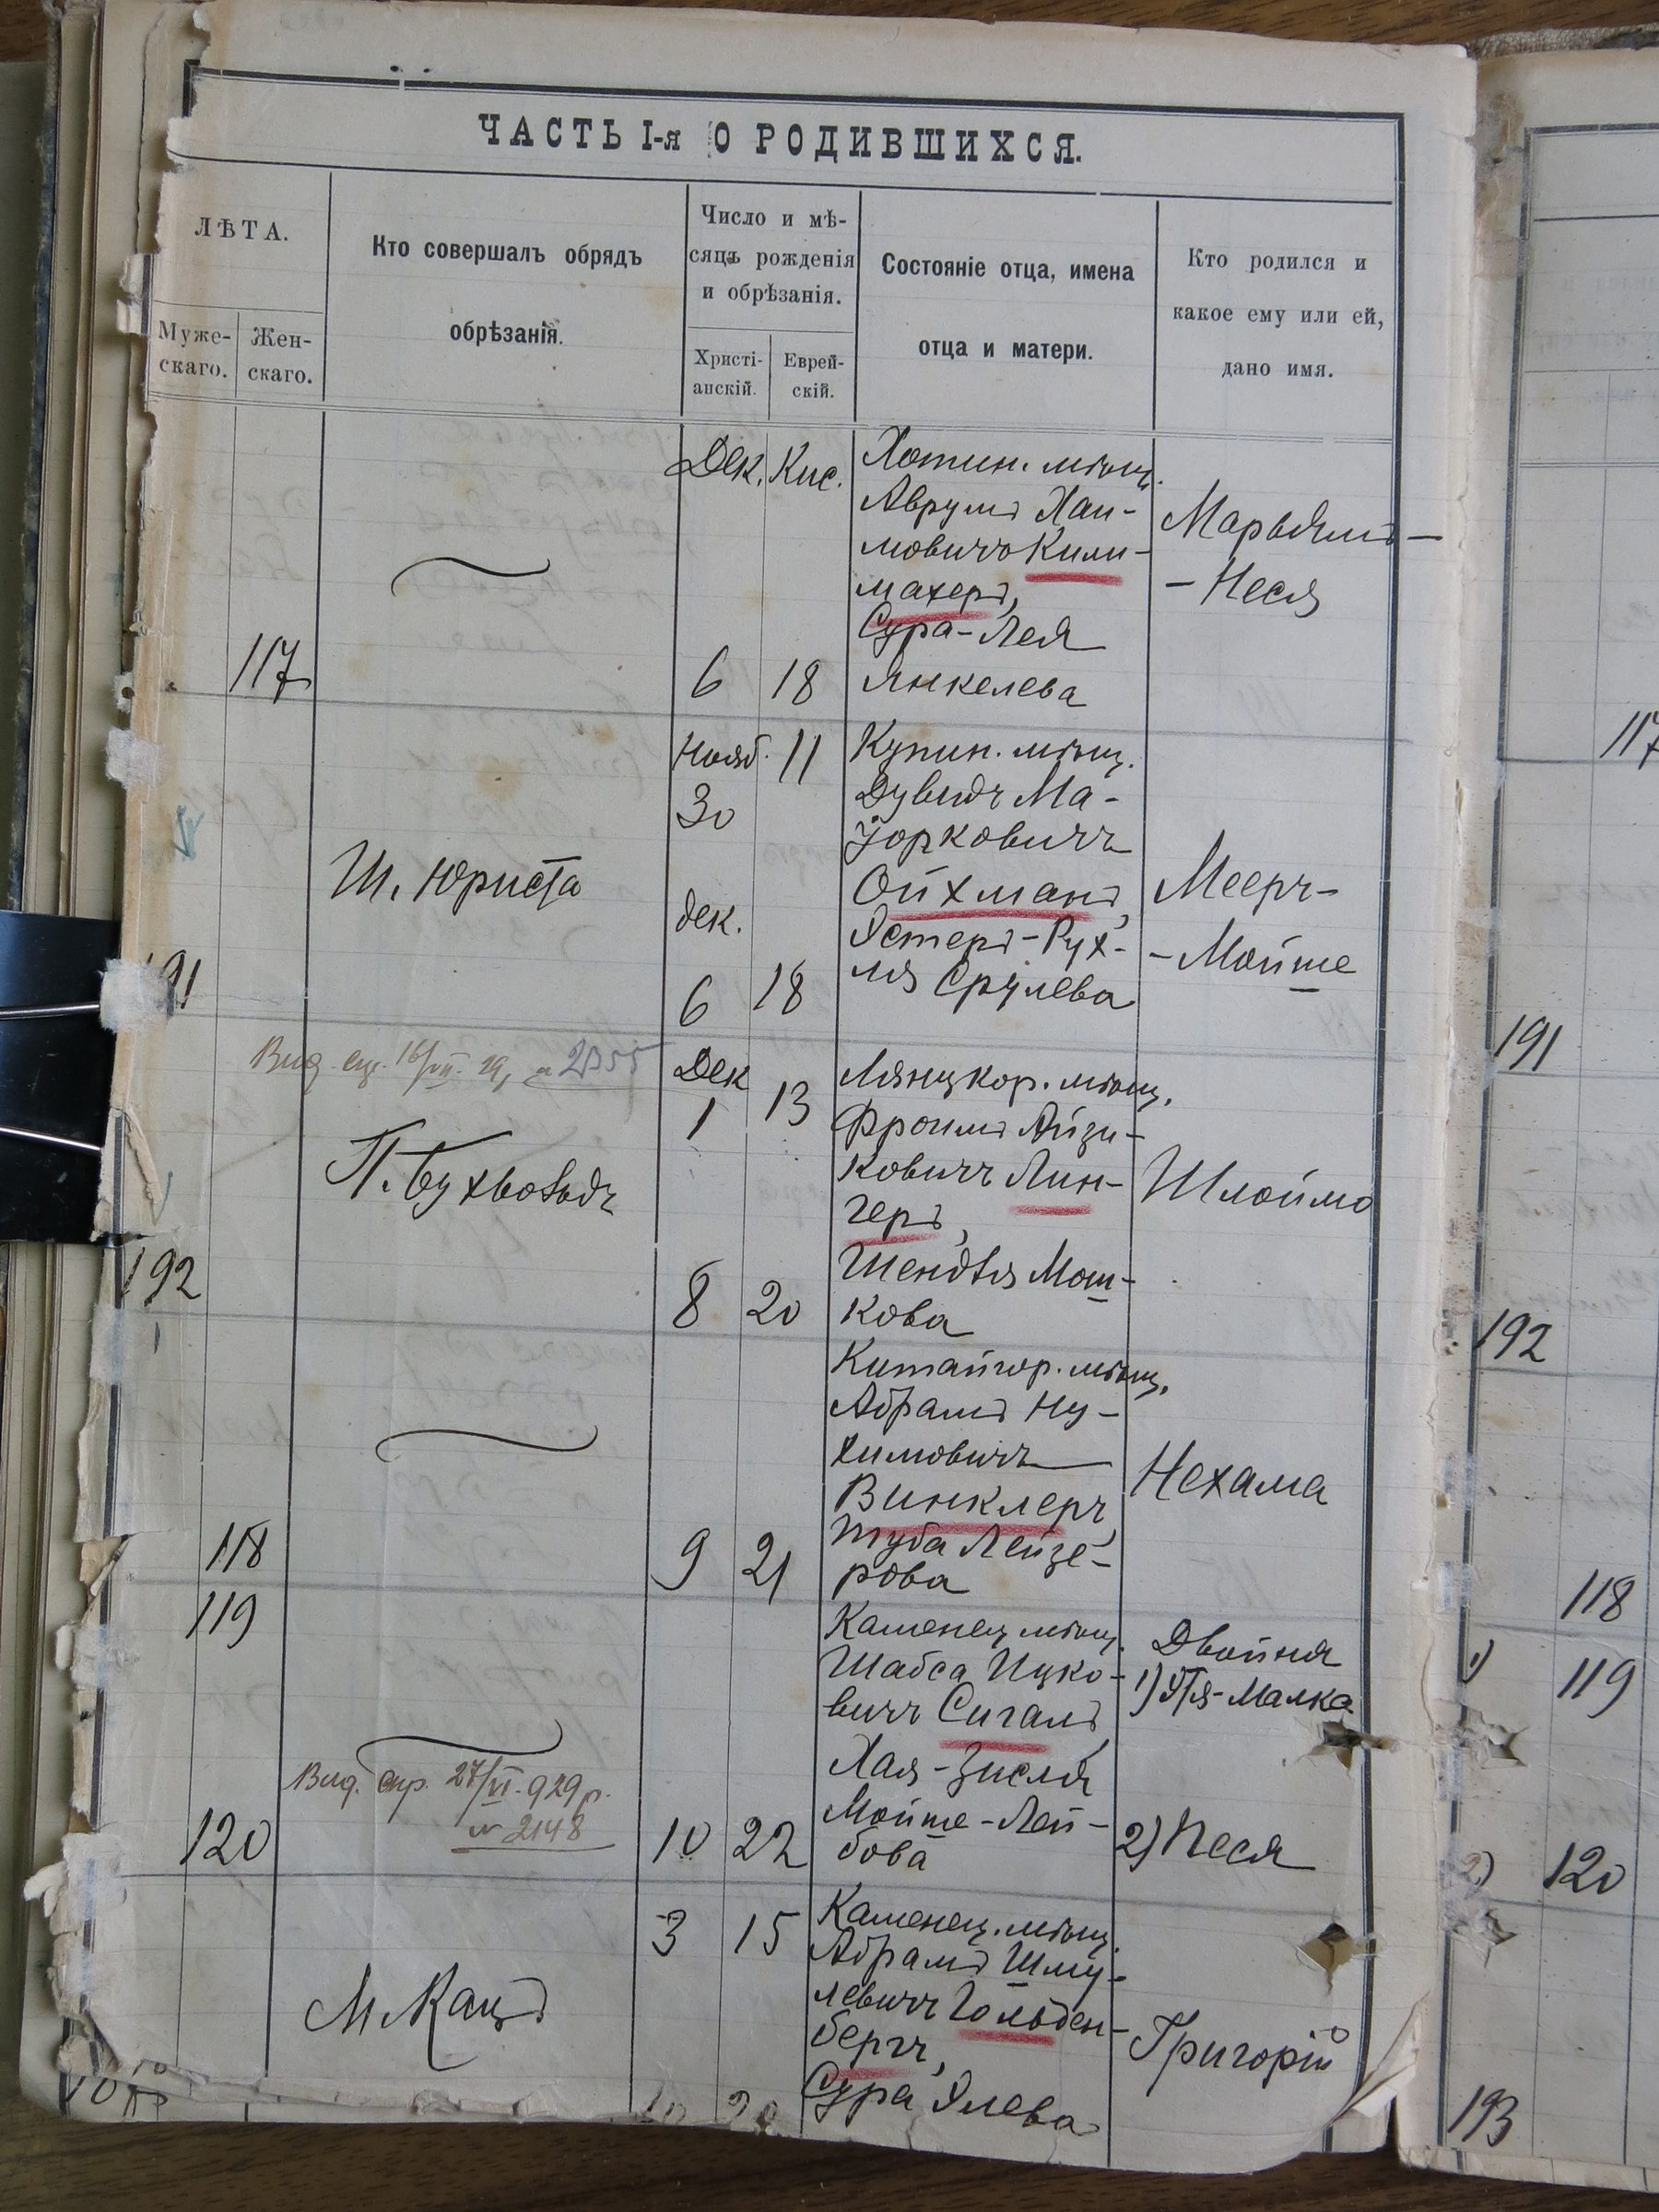 ЧАСТЬ I-я О РОДИВШИХСЯ.
ЛѢТА.
Муже-
скаго.
Жен-
скаго.
Кто совершалъ обрядъ
обрѣзанія.
Число и мѣ-
сяцъ рожденія
и обрѣзанія.
Христі-
анскій.
Еврей-
скій.
Состояніе отца, имена
отца и матери.
Кто родился и
какое ему или ей,
дано имя.
117
Дек. Кис.
6 18
Хотин. мѣщ.
Аврумъ Хаи-
мовичъ Кили-
махеръ,
Сура-Лея
Янкелева
Марьямъ-
-Неся
191
Ш. Юриста
Нояб. 11
30
дек.
6 18
Купин. мѣщ.
Дувидъ Ма-
Йорковичъ
Ойхманъ,
Эстеръ-Рух-
ля Срулева
Мееръ-
-Мойше
192
П. Бухвовъдъ
Дек
1 13
8 20
Лянцкор. мѣщ.
Фроимъ Айзи-
ковичъ Лин-
геръ,
Шендля Мош-
кова
Шлоймо
118
9 21
Китайгор. мѣщ.
Абрамъ Ну-
химовичъ
Винклеръ,
Туба Лейзе-
рова
Нехама
119
120
Вид. 27/VI.929 р.
№ 2148
10 22
Каменец. мѣщ.
Шабса Ицко-
вичъ Сигалъ,
Хая-Зисля
Мойше-Лей-
бова
Двойня
1) Этя-Малка
2) Песя
М. Кацъ
3 15
Каменец. мѣщ.
Абрамъ Шму-
левичъ Гольден-
бергъ,
Сура Элева
Григорій
117
191
192
118
1) 119
2) 120
193